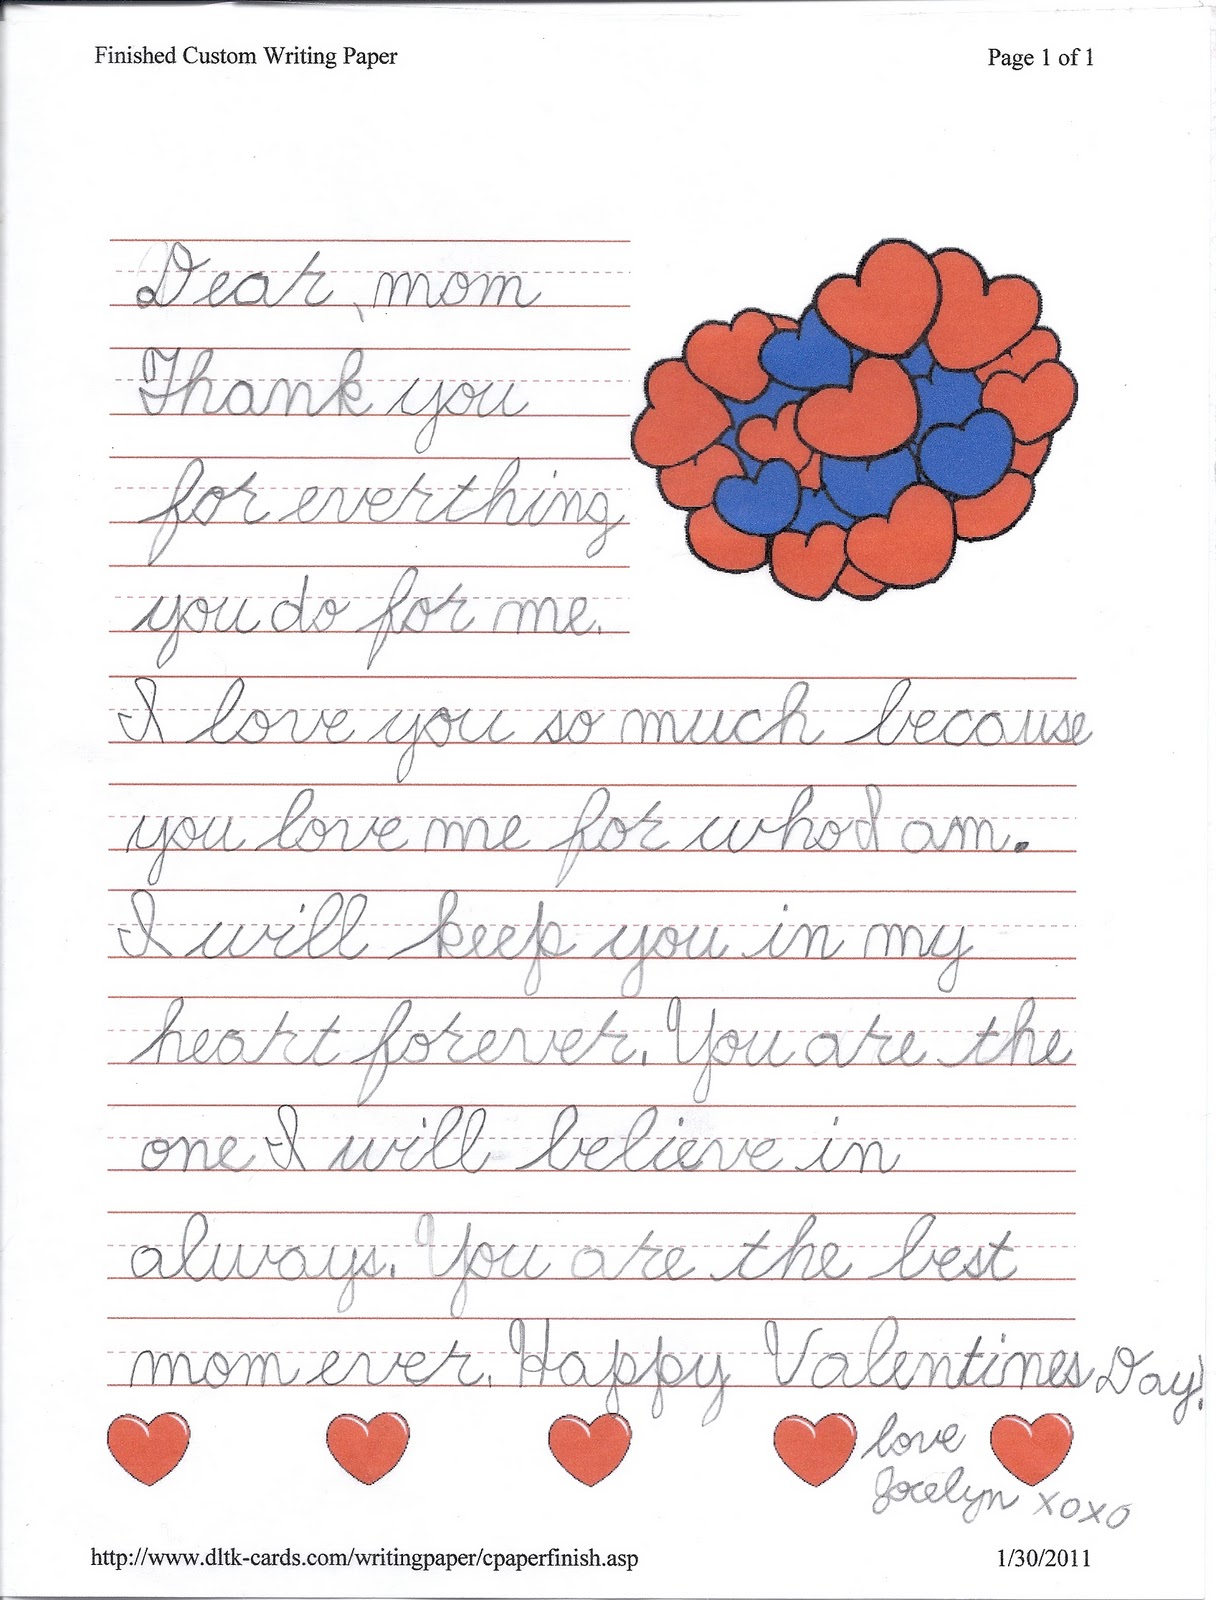 Finished Custom Writing Paper Page 1 of 1
Dear, mom
Thank you
for everthing
you do for me.
I love you so much because
you love me for who I am.
I will keep you in my
heart forever. You are the
one I will believe in
always. You are the best
mom ever. Happy Valentines Day!
love
Jocelyn xoxo
http://www.dltk-cards.com/writingpaper/cpaperfinish.asp 1/30/2011